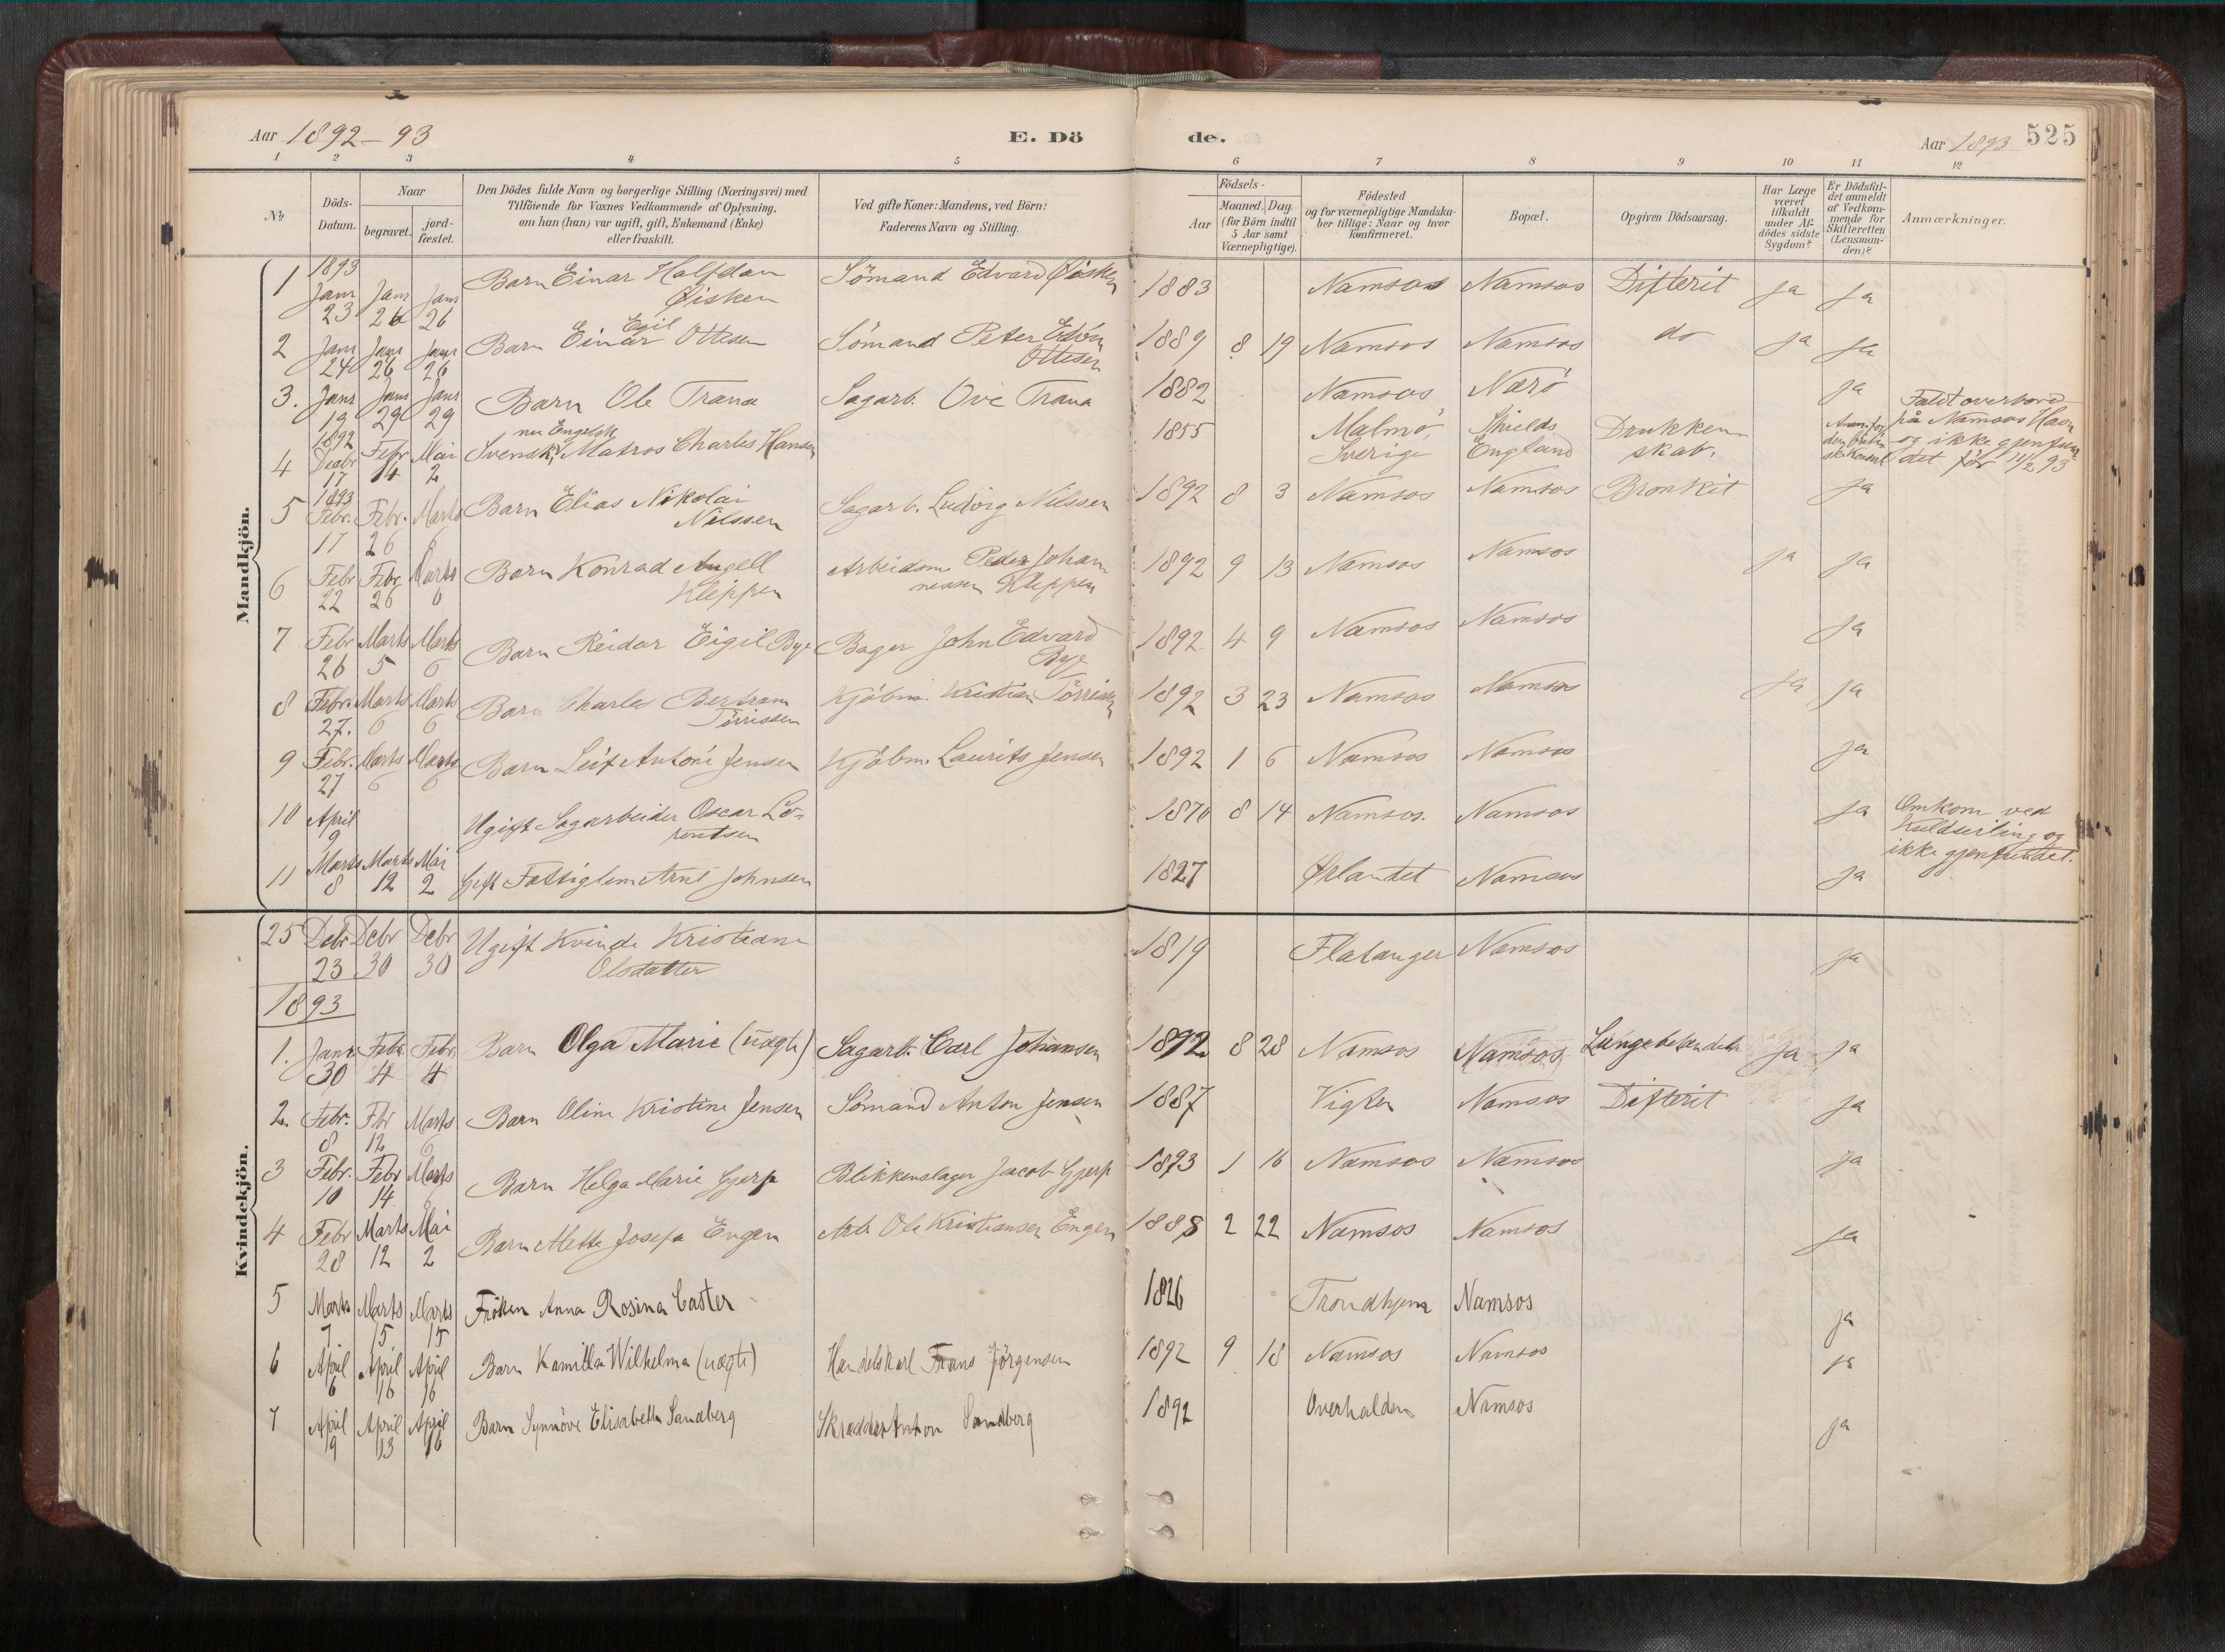 Aar 1892-93
E. Dö
de.
Aar 1893
525
1 2 3 4 5 6 7 8 9 10 11 12
№
Döds-
Datum.
Naar
begravet.
jord-
fæstet.
Den Dödes fulde Navn og borgerlige Stilling (Næringsvei) med
Tilföiende for Voxnes Vedkommende af Oplysning,
om han (hun) var ugift, gift, Enkemand (Enke)
eller fraskilt.
Ved gifte Koner: Mandens, ved Börn:
Faderens Navn og Stilling.
Födsels-
Aar
Maaned. Dag.
(for Börn indtil
5 Aar samt
Værnepligtige).
Födested
og for værnepligtige Mandska-
ber tillige: Naar og hvor
konfirmeret.
Bopæl.
Opgiven Dödsaarsag.
Har Læge
været
tilkaldt
under Af-
dödes sidste
Sygdom?
Er Dödsfal-
det anmeldt
af Vedkom-
mende for
Skifteretten
(Lensman-
den)?
Anmærkninger.
Mandkjön.
1893
1 Janr Janr Janr Barn Einar Halfdan Sömand Edvard Øisken 1883 Namsos Namsos Difterit ja ja
23 26 26 Øisken
Egil
2 Janr Janr Janr Barn Einar Ottesen Sömand Peter Edøn 1889 8 19 Namsos Namsos do ja ja
24 26 26 Ottesen
3. Janr Janr Janr Barn Ole Trana Sagarb. Ove Trana 1882 Namsos Nærö ja
19 29 29
1892 nu Engelsk
4 Decbr Febr Mai Svensk, Matros Charles Hansen 1855 Malmö, Shields Drukken-
17 14 2 Sverige England skab.
Faldt overbord
på Namsos Havn
og ikke gjenfun-
det för 11/2 93
1893
5 Febr. Febr. Marts Barn Elias Nikolai Sagarb. Ludvig Nilssen 1892 8 3 Namsos Namsos Bronkit ja
17 26 6 Nilssen
6 Febr Febr Marts Barn Konrad Angell Arbeidsm Peder Johan- 1892 9 13 Namsos Namsos ja ja
22 26 6 Kleppen nessen Kleppen
7 Febr Marts Marts Barn Reidar Eigil Bye Bager John Edvard 1892 4 9 Namsos Namsos ja
26 5 6 Bye
8 Febr. Marts Marts Barn Charles Bertram Kjöbm. Kristian Törrissen 1892 3 23 Namsos Namsos ja ja
27. 6 6 Törrissen
9 Febr. Marts Marts Barn Leif Antoni Jensen Kjöbm. Laurits Jensen 1892 1 6 Namsos Namsos ja
27 6 6
10 April Ugift Sagarbeider Oscar Lo- 1870 8 14 Namsos. Namsos ja Omkom ved
9 rentsen Kuldseiling og
ikke gjenfundet.
11 Marts Marts Mai Gift Fattiglem Arnt Johnsen 1827 Ørlandet Namsos ja
8 12 2
Kvindekjön.
25 Debr Debr Debr Ugift Kvinde Kristiane 1819 Flatanger Namsos ja
23 30 30 Olsdatter
1893
1. Janr Febr. Febr. Barn Olga Marie (uægte) Sagarb. Carl Johansen 1892 8 28 Namsos Namsos Lungebetændelse ja ja
30 4 4
2. Febr. Fbr Marts Barn Oline Kristine Jensen Sömand Anton Jensen 1887 Vigten Namsos Difterit ja
8 12 6
3 Febr. Febr Marts Barn Helga Marie Gjerp Blikkenslager Jacob Gjerp 1893 1 16 Namsos Namsos ja
10 14 6
4 Febr Marts Mai Barn Mette Josefa Engen Arb. Ole Kristiansen Engen 1888 2 22 Namsos Namsos ja
28 12 2
5 Marts Marts Marts Fröken Anna Rosina Caster 1826 Trondhjem Namsos ja
7 15 15
6 April April April Barn Kamilla Wilhelma (uægte) Handelskarl Frans Jörgensen 1892 9 18 Namsos Namsos ja
6 16 16
7 April April April Barn Synnöve Elisabeth Sandberg Skrædder Anton Sandberg 1892 Overhalden Namsos ja
9 13 16